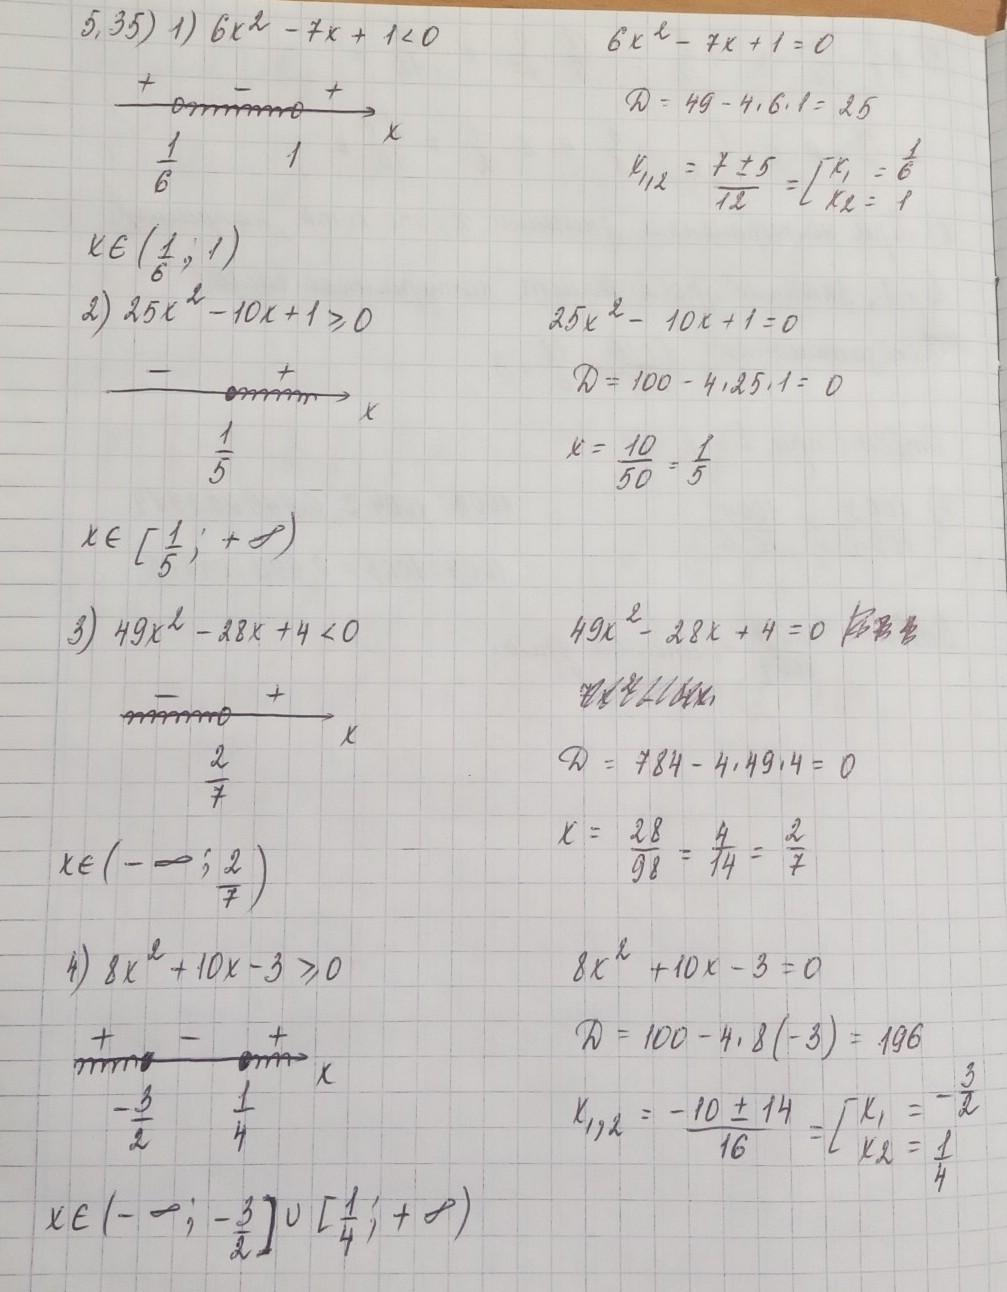 5.35) 1) 6x² - 7x + 1 < 0
6x² - 7x + 1 = 0
+ - +
x
1/6 1
D = 49 - 4·6·1 = 25
x₁,₂ = (7 ± 5)/12 = [x₁ = 1/6
x₂ = 1
x ∈ (1/6; 1)
2) 25x² - 10x + 1 ⩾ 0
25x² - 10x + 1 = 0
- +
x
1/5
D = 100 - 4·25·1 = 0
x = 10/50 = 1/5
x ∈ [1/5; + ∞)
3) 49x² - 28x + 4 < 0
49x² - 28x + 4 = 0
- +
x
2/7
D = 784 - 4·49·4 = 0
x = 28/98 = 4/14 = 2/7
x ∈ (- ∞; 2/7)
4) 8x² + 10x - 3 ⩾ 0
8x² + 10x - 3 = 0
+ - +
x
-3/2 1/4
D = 100 - 4·8(-3) = 196
x₁,₂ = (-10 ± 14)/16 = [x₁ = -3/2
x₂ = 1/4
x ∈ (- ∞; -3/2] ∪ [1/4; + ∞)